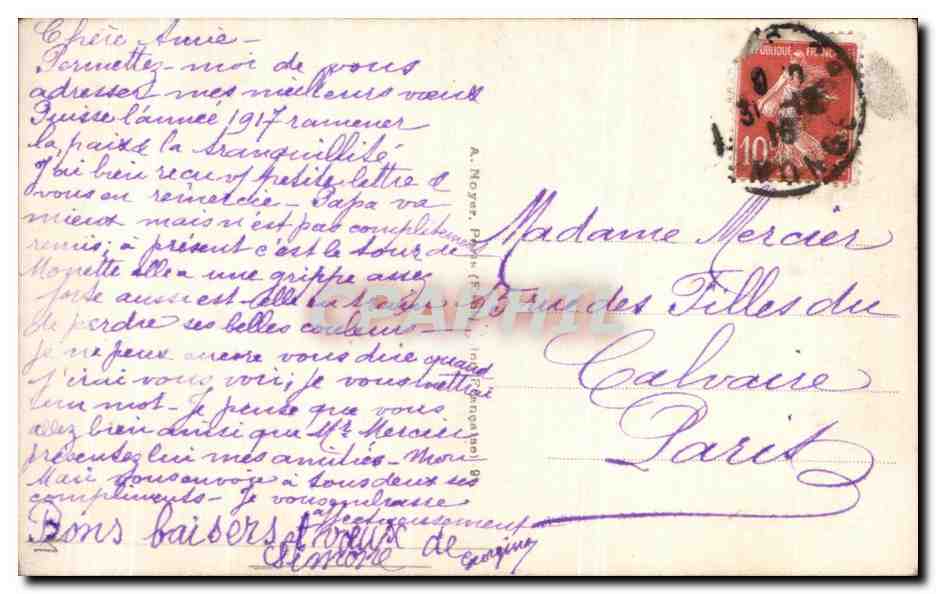 Chère Amie -
Permettez-moi de vous
adresser mes meilleurs vœux
Puisse l'année 1917 ramener
la paix & la tranquillité
J'ai bien reçu v/ petite lettre &
vous en remercie - Papa va
mieux mais n'est pas complètement
remis; à présent c'est le tour de
Monette elle a une grippe assez
forte aussi est-elle en train
de perdre ses belles couleurs
je ne peux encore vous dire quand
j'irai vous voir; je vous mettrai
un mot - Je pense que vous
allez bien ainsi que Mr. Mercier
présentez lui mes amitiés - Mon
Mari vous envoie à tous deux ses
compliments - Je vous embrasse
affectueusement
Georgina
Bons baisers & vœux de
Simone
A. Noyer, Paris
Française
Madame Mercier
rue des Filles du
Calvaire
Paris
RÉPUBLIQUE FRANC
10
31
16
CPAPHIL